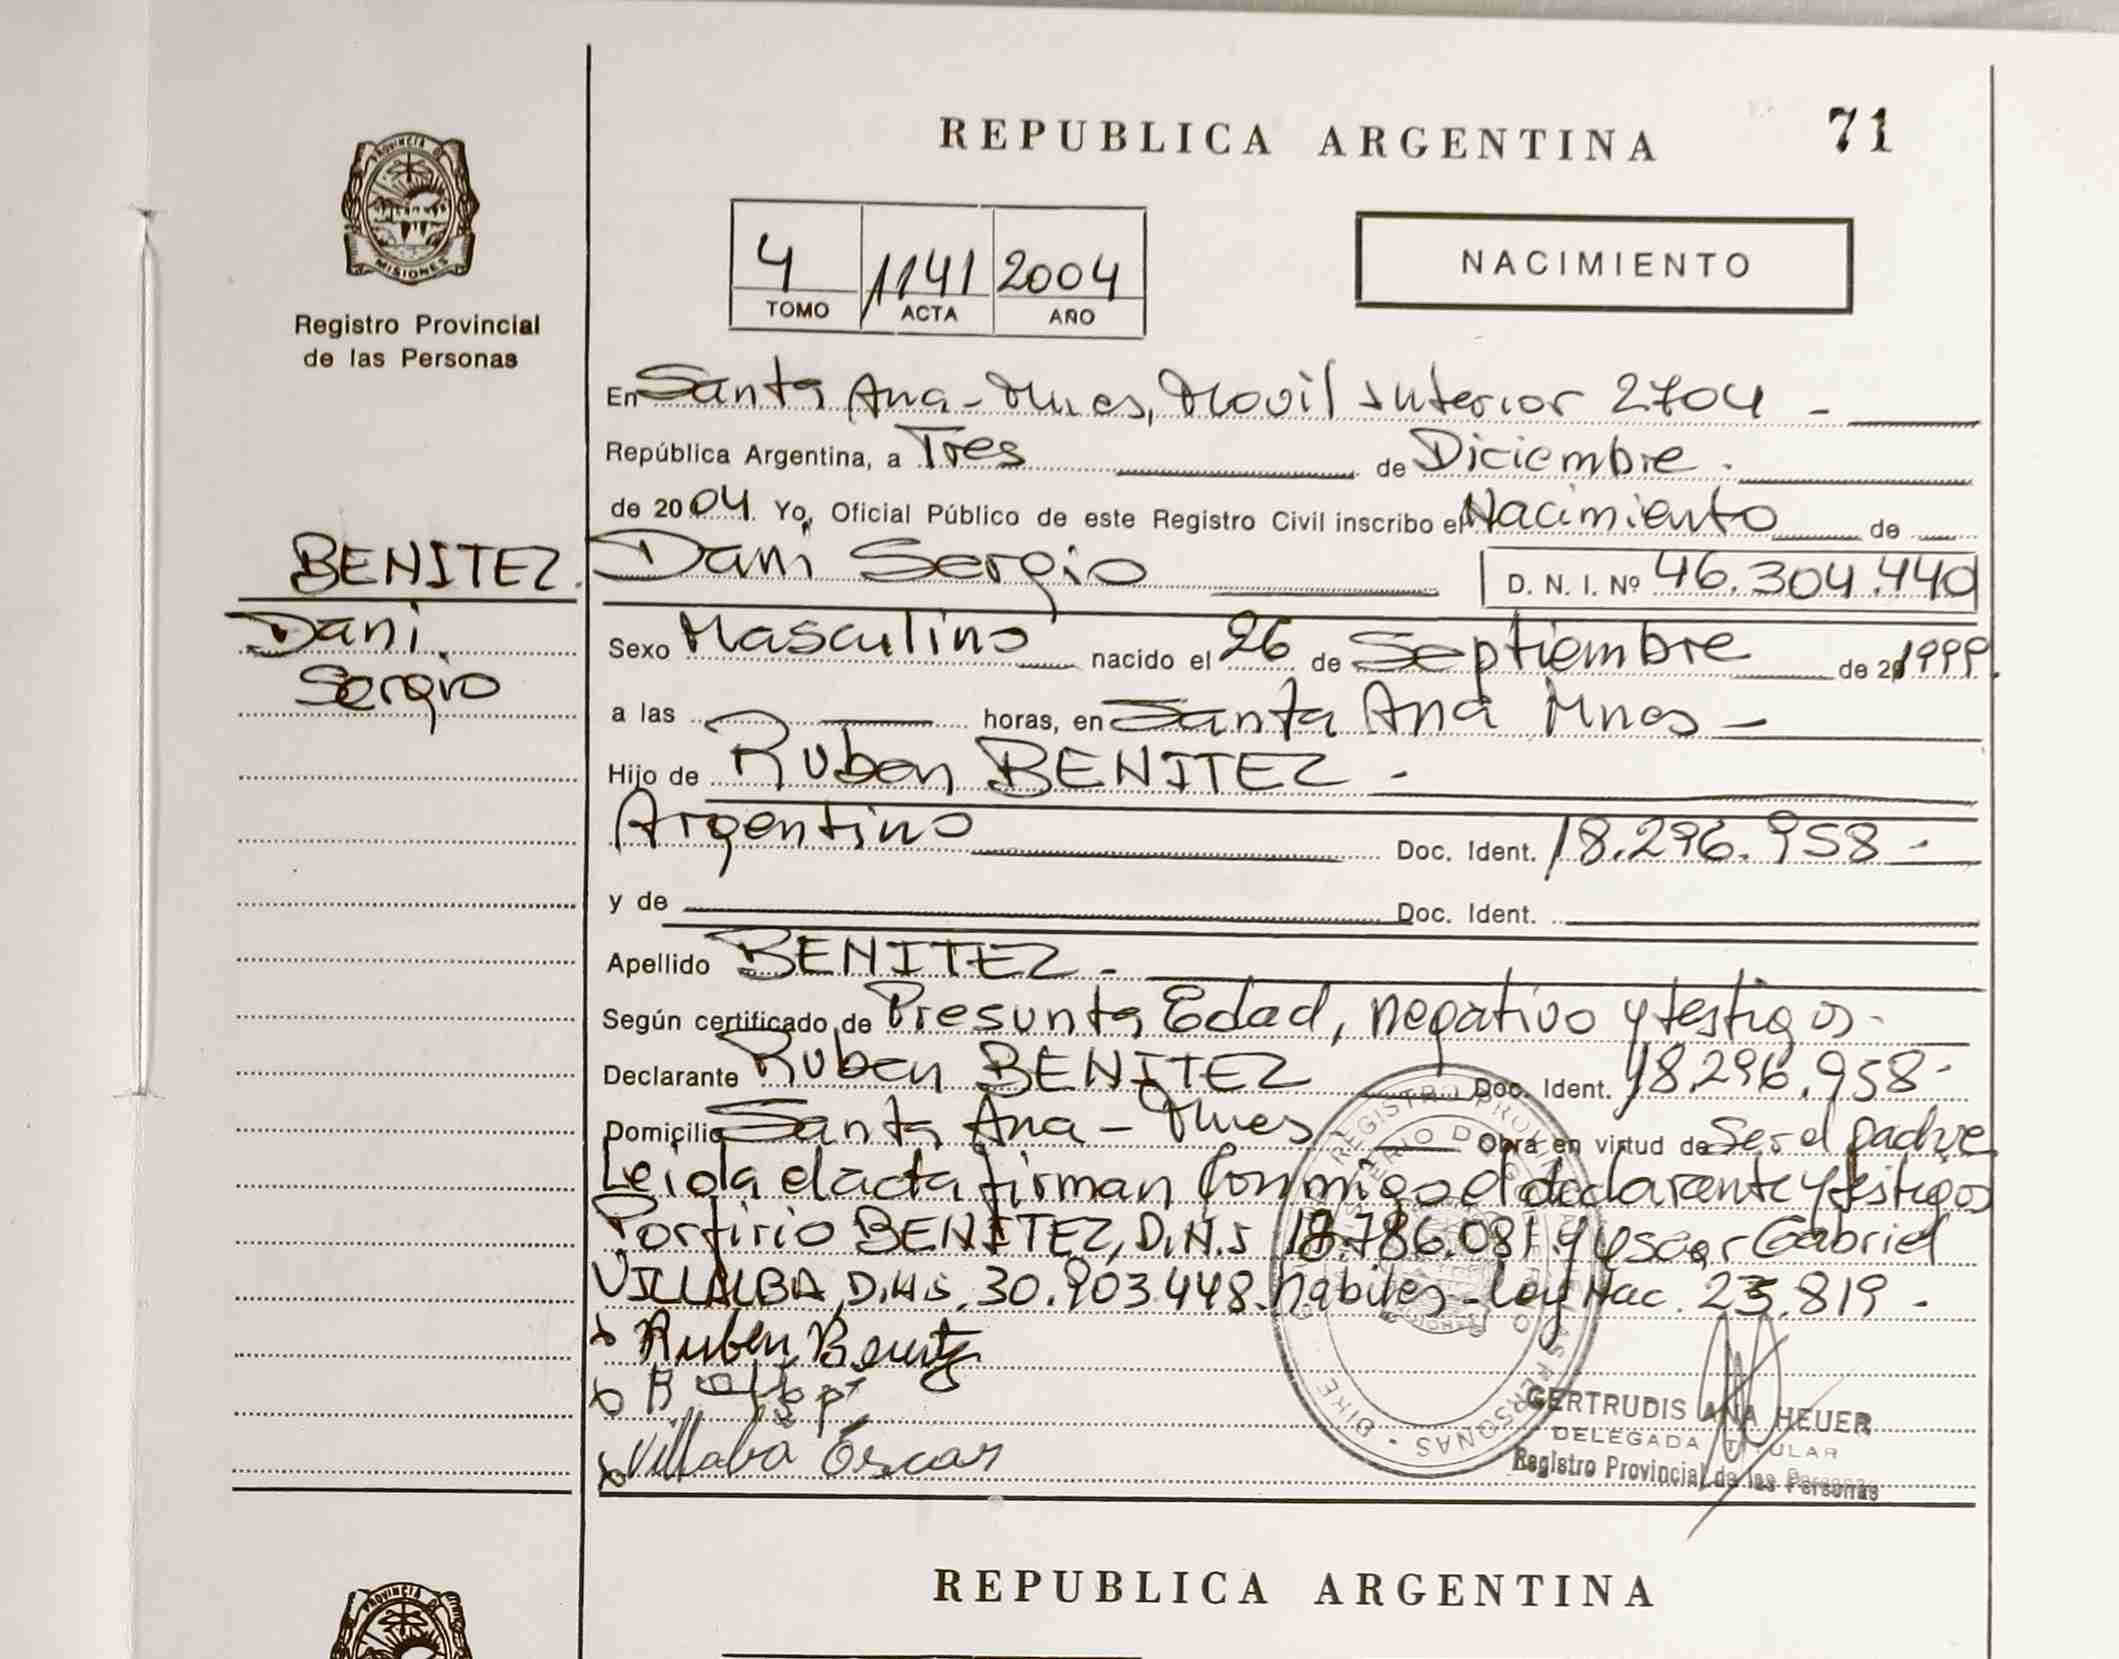 REPUBLICA ARGENTINA
71
PROVINCIA DE
MISIONES
Registro Provincial
de las Personas
4 1141 2004
TOMO ACTA AÑO
NACIMIENTO
En Santa Ana - Mnes, Movil Interior 2704 -
República Argentina, a Tres de Diciembre.
de 2004. Yo, Oficial Público de este Registro Civil inscribo el Nacimiento de
BENITEZ.
Dani
Sergio
Dani Sergio D. N. I. Nº 46.304.440
Sexo Masculino nacido el 26 de Septiembre de 1999.
a las horas, en Santa Ana Mnes -
Hijo de Ruben BENITEZ -
Argentino Doc. Ident. 18.296.958 -
y de Doc. Ident.
Apellido BENITEZ -
Según certificado de Presunta Edad, negativo y testigos -
Declarante Ruben BENITEZ Doc. Ident. 18.296.958 -
Domicilio Santa Ana - Mnes Obra en virtud de Ser el padre
Leida el acta firman Conmigo el declarante y testigos
Porfirio BENITEZ, D.N.I 18.786.081 y Oscar Gabriel
VILLALBA, D.N.I. 30.903.448 habiles - Ley Nac. 23.819 -
Ruben Benitez
Villalba Oscar
GERTRUDIS ANA HEUER
DELEGADA TITULAR
Registro Provincial de las Personas
REPUBLICA ARGENTINA
PROVINCIA DE